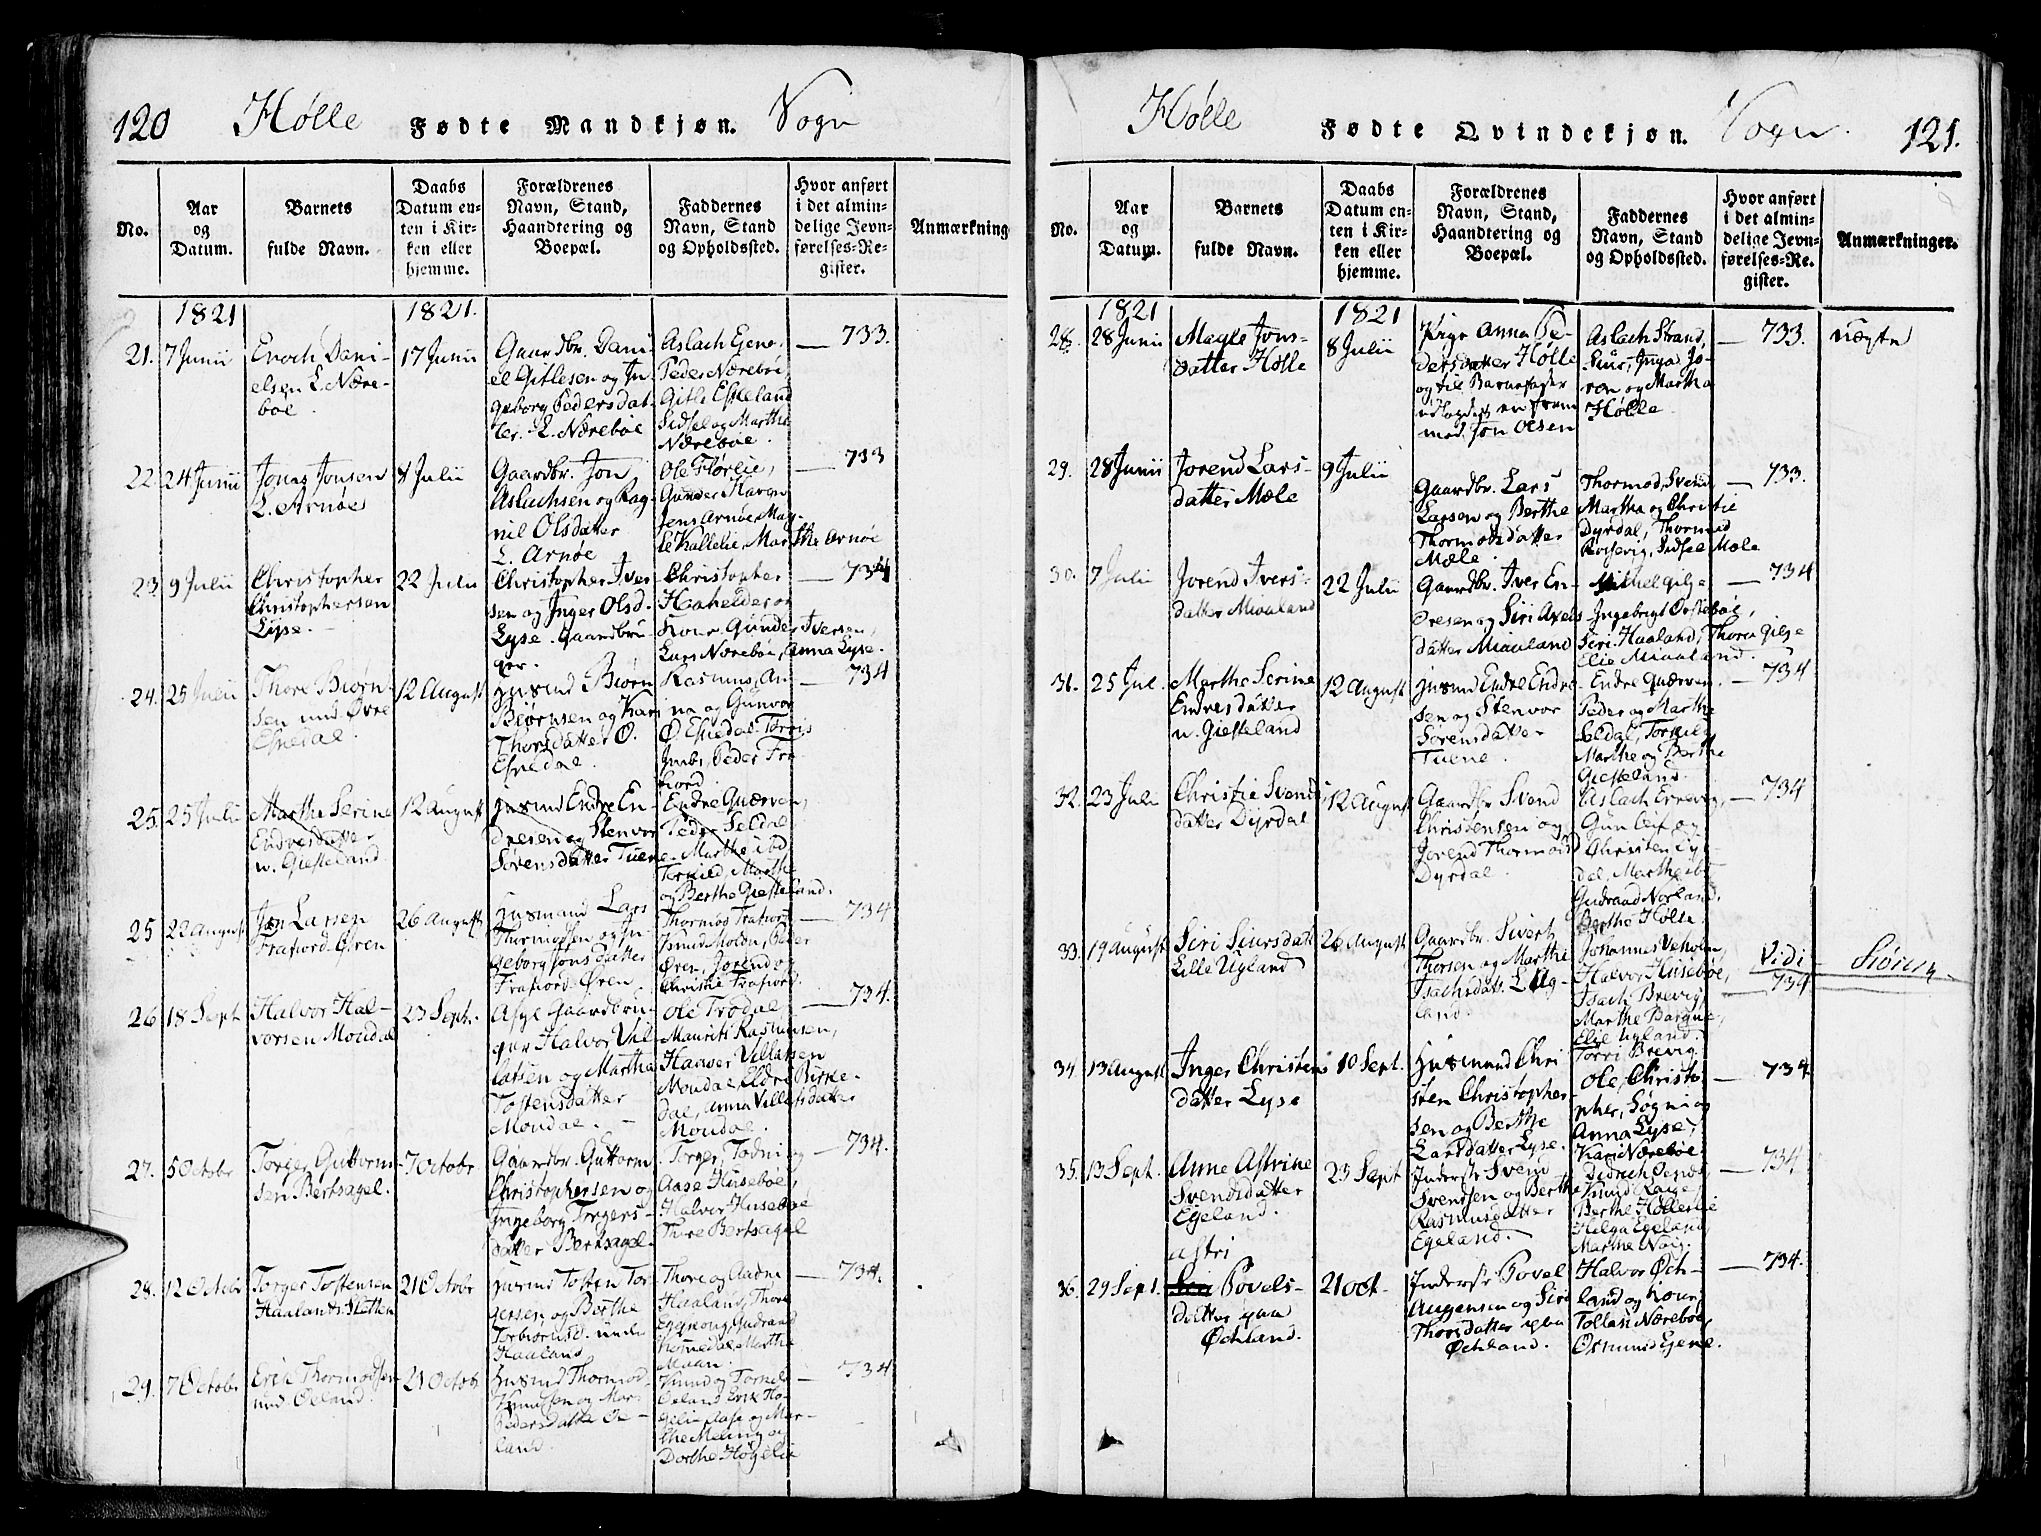 120 Hølle Fødte Mandkjøn. Sogn
No.
Aar
og
Datum.
Barnets
fulde Navn.
Daabs
Datum en-
ten i Kir-
ken eller
hjemme.
Forældrenes
Navn, Stand,
Haandtering og
Boepæl.
Faddernes
Navn, Stand
og Opholdssted.
Hvor anført
i det almin-
delige Jevn-
førelses-Re-
gister.
Anmærkning
1821
1821.
21.
7 Junii
Enoch Dani-
elsen L. Nære-
bøe.
17 Junii
Gaardbr. Dani
el Gitlesen og In
geborg Pedersdat-
ter. L. Nærebøe
Aslach Ejene,
Peder Nærebøe,
Gitle Eskeland
Sidsel og Marthe
Nærebøe.
733.
22.
24 Junii
Jonas Jonsen
L. Arnøe
8 Julii
Gaardbr. Jon
Aslachsen og Rag
nil Olsdatter
L. Arnøe
Ole Flørlie,
Gunder Haven
Jens Arnøe, Mag-
le Kallelie, Marthe Arnøe
733
23.
9 Julii
Christopher
Christophersen
Lyse.
22 Julii
Christopher Iver
sen og Inger Olsd.
Lyse. Gaardbru
ger.
Christopher
Haahelder og
Kone. Gunder Iversen,
Lars Nærebøe, Anna Lyse.
734
24.
25 Julii
Thore Biørn-
sen und. Øvre
Espedal.
12 August
Husmd Biørn
Biørnsen og Kari
Thorsdatter Ø.
Espedal.
Rasmus, An-
na og Gunvor
Ø. Espedal. Torris
Imbs, Peder Fra
fiord
734
25.
25 Julii
Marthe Serine
Endresdatter
u. Gieskeland
12 August
Husmd Endre En-
dresen og Stenvor
Sørensdatter Tuene
Endre Qværven,
Peder Seldal
Marthe ibd.
Torkild, Marthe
og Berthe Gieskeland.
25
22 August
Jon Larsen
Frafiord-Øren
26 August
Husmand Lars
Thormodsen og In-
geborg Jonsdatter
Frafiord Øren
Thormod Frafiord
Knud Molden, Peder
Øren, Jorend og
Christie Frafiord.
734
26
18 Sept
Halvor Hal-
vorsen Mondal
23 Sept.
Afg. Gaardbru-
ger Halvor Vil-
latsen og Martha
Tostensdatter
Mondal.
Ole Trodal
Maurits Rasmusen,
Hanver Villatsen
Mondal, Eldri Birke-
dal, Anna Villatsdatter
Mondal.
734.
27.
5 Octobr
Torger Guttorm-
sen Bertsagel.
7 Octobr
Gaardbr. Guttorm
Christophersen og
Ingeborg Torgers-
datter Bertsagel.
Torger, Todni og
Aase Husebøe,
Halvor Husebøe
Thore Bertsagel
734.
28.
12 Octobr
Torger Tostensen
Haalandsletten
21 Octobr
Husmd Tosten Tor-
gersen og Berthe
Torbiørnsd. under
Haaland
Thore og Aadne
Haaland, Thore
Engesong Gudraand
Komedal, Marthe
Maan.
734.
29.
7 Octobr
Erik Thormodsen
und Øeland.
21 Octobr
Husmd Thormod
Knudsen og Mar.
Pedersdatter Øe-
land.
Knud og Torkel
Øeland Erik Hø-
gelie Aase og Mar-
the Meling og
Dorthe Høgelie
734
Hølle Fødte Qvindekjøn. Sogn. 121.
No.
Aar
og
Datum.
Barnets
fulde Navn.
Daabs
Datum en-
ten i Kir-
ken eller
hjemme.
Forældrenes
Navn, Stand,
Haandtering og
Boepæl.
Faddernes
Navn, Stand
og Opholdssted.
Hvor anført
i det almin-
delige Jevn-
førelses-Re-
gister.
Anmærkninger.
1821
1821
28.
28 Junii
Magle Jons-
datter Hølle
8 Julii
Pige Anna Pe-
dersdatter Hølle
og til Barnefader
udlagdes en frem
med Jon Olsen
Aslach Strand,
Siur, Inga Jo-
ren og Martha
Hølle
733.
uægte
29.
28 Junii
Jorend Lars-
datter Mæle
9 Julii
Gaardbr. Lars
Larsen og Berthe
Thormodsdatter
Mæle.
Thormod, Svend,
Martha og Christie
Dyrdal, Thormod
Rossevig, Sidsel Mæle
733.
30.
7 Julii
Jorend Ivers-
datter Miaaland
22 Julii
Gaardbr. Iver En-
dresen og Siri Axels-
datter Miaaland
Michel Gilje
Ingebrigt Ovstebøe,
Siri Haaland, Thora Gilje
Elie Miaaland.
734
31.
25 Jul.
Marthe Serine
Endresdatter
u. Gieskeland
12 August
Husmd Endre Endre-
sen og Stenvor
Sørensdatter
Tuene.
Endre Qværven.
Peder og Marthe
Seldal, Torkild
Marthe og Berthe
Gieskeland.
734
32.
23 Juli
Christie Svends-
datter Dyrdal
12 August
Gaardbr. Svend
Christensen og
Jorend Thormodsd
Dyrdal.
Aslach Ernevig,
Gunleif og
Christen Dyr-
dal, Marthe ibd.
Gudraand Norland,
Berthe Hølle.
734
33.
19 August
Siri Siursdatt
Lille Ugland
26 August
Gaardbr. Sivert
Thorsen og Marthe
Isachsdatt. L. Ug-
land.
Johannes Veholm,
Halvor Husebøe,
Isach Brevig,
Marthe Bargue,
Elie Ugland.
Torri Brevig.
Vidi
734
Siøren
34
13 August
Inger Christens
datter Lyse
10 Sept.
Husmand Chri
sten Christopher-
sen og Berthe
Larsdatter Lyse.
Ole, Christo-
pher, Sogni og
Anna Lyse,
Kari Nærebøe
734
35.
13 Sept.
Anne Astrine
Svendsdatter
Egeland.
23 Sept
Inderste Svend
Svendsen og Berthe
Rasmusdatter
Egeland.
Didrich Oenæs,
Knud Rage
Berthe Høllestie
Helga Egeland,
Marthe Nair.
734
36.
29 Sept.
Astri
Siri Povels-
datter paa
Øchland.
21 oct.
Inderste Povel
Augensen og Siri
Thorsdatter paa
Øchland.
Halvor Øch-
land og Kone,
Tollan Nærebøe,
Osmund Ejene.
734.